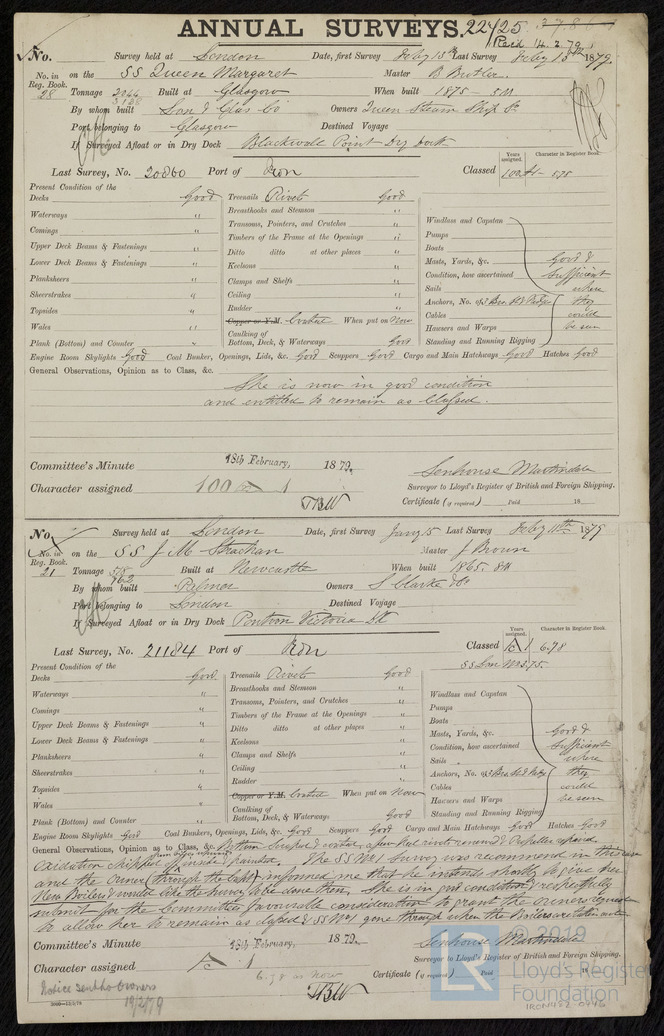 ANNUAL SURVEYS. 22425
Paid 14.2.79
No. Survey held at London Date, first Survey Feby 13th Last Survey Feby 13th 1879
No. in Reg. Book. on the SS Queen Margaret Master B Butler
28 Tonnage 2044 Built at Glasgow When built 1875 - 5M
By whom built Lon & Glas Co Owners Queen Steam Ship Co
Port belonging to Glasgow Destined Voyage
If Surveyed Afloat or in Dry Dock Blackwall Point Dry Dock
Years assigned. Character in Register Book.
Last Survey, No. 20860 Port of Iron Classed 100 A1 - 5.75
Present Condition of the
Decks Good Treenails Rivets Good
Waterways " Breasthooks and Stemson "
Comings " Transoms, Pointers, and Crutches " Windlass and Capstan
Timbers of the Frame at the Openings " Pumps
Upper Deck Beams & Fastenings " Ditto ditto at other places " Boats
Lower Deck Beams & Fastenings " Keelsons " Masts, Yards, &c. Good &
Planksheers " Clamps and Shelfs " Condition, how ascertained sufficient
Sheerstrakes " Ceiling " Sails where
Topsides " Rudder " Anchors, No. of they
Wales " Copper or Y.M. When put on Now Cables could
Plank (Bottom) and Counter " Caulking of Bottom, Deck, & Waterways Good Hawsers and Warps be seen
Standing and Running Rigging
Engine Room Skylights Good Coal Bunker, Openings, Lids, &c. Good Scuppers Good Cargo and Main Hatchways Good Hatches Good
General Observations, Opinion as to Class, &c.
She is now in good condition
and entitled to remain as Classed.
Committee's Minute 18th February, 1879. Senhouse Martindale
Character assigned 100 A 1 Surveyor to Lloyd's Register of British and Foreign Shipping.
Certificate (if required) Paid 18
No. Survey held at London Date, first Survey Jany 15 Last Survey Feby 11th 1879
No. in Reg. Book. on the SS J M Strachan Master J Brown
21 Tonnage 578 762 Built at Newcastle When built 1865. 8M
By whom built Palmer Owners S Clarke & Co
Port belonging to London Destined Voyage
If Surveyed Afloat or in Dry Dock Pontoon Victoria Dk
Years assigned. Character in Register Book.
Last Survey, No. 21184 Port of Iron Classed A 1 6.78
SS Lon No3.75.
Present Condition of the
Decks Good Treenails Rivets Good
Waterways " Breasthooks and Stemson "
Comings " Transoms, Pointers, and Crutches " Windlass and Capstan
Timbers of the Frame at the Openings " Pumps
Upper Deck Beams & Fastenings " Ditto ditto at other places " Boats
Lower Deck Beams & Fastenings " Keelsons " Masts, Yards, &c. Good &
Planksheers " Clamps and Shelfs " Condition, how ascertained sufficient
Sheerstrakes " Ceiling " Sails " where
Topsides " Rudder " Anchors, No. of they
Wales " Copper or Y.M. When put on Now Cables could
Plank (Bottom) and Counter " Caulking of Bottom, Deck, & Waterways Good Hawsers and Warps be seen
Standing and Running Rigging
Engine Room Skylights Good Coal Bunkers, Openings, Lids, &c. Good Scuppers Good Cargo and Main Hatchways Good Hatches Good
General Observations, Opinion as to Class, &c. Bottom scraped & coated,
Oxidation chipped & painted. The SS No1 Survey was recommend in this case
and the Owner (through the Capt) informed me that he intends shortly to give her
New Boilers & would like the honor to be done then, She is in good condition & I respectfully
submit for the Committee's favourable consideration to grant the owners request
to allow her to remain as classed & SS No1 gone through when the Boilers are taken out
Committee's Minute 18th February, 1879. Senhouse Martindale
Character assigned A 1 Surveyor to Lloyd's Register of British and Foreign Shipping.
6.78 as now Certificate (if required) Paid 18
Notice sent to Owners
19/2/79
© 2019
LR
Lloyd's Register
Foundation
IRON482-0446